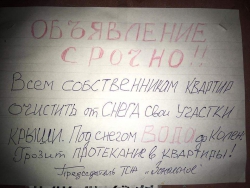 ОБЪЯВЛЕНИЕ
СРОЧНО!!
Всем собственникам КВАРТИР
ОЧИСТИТЬ от СНЕГА свои УЧАСТКИ
КРЫШИ. Под снегом ВОДА до колен
Грозит ПРОТЕКАНИЕ в КВАРТИРЫ!
Председатель ТСН